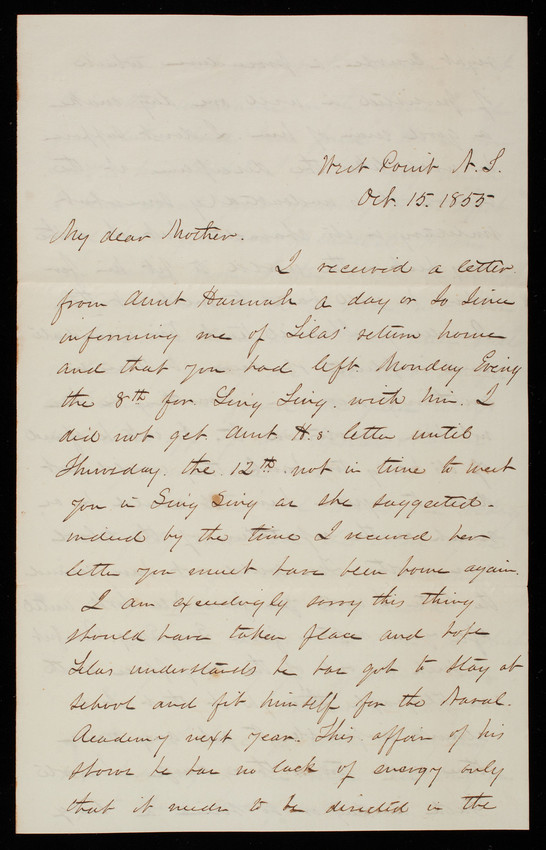 West Point N.Y.
Oct. 15. 1855
My dear Mother.
I received a letter
from Aunt Hannah a day or so since
informing me of Silas' return home
and that you had left Monday Eving
the 8th for Sing Sing. with him. I
did not get Aunt H.s letter until
Thursday. the 12th. not in time to meet
you in Sing Sing as she suggested.
indeed by the time I received her
letter you must have been home again.
I am exceedingly sorry this thing
should have taken place and hope
Silas understands he has got to stay at
school and fit himself for the Naval.
Academy next year. This affair of his
shows he has no lack of energy only
that it needs to be directed in the